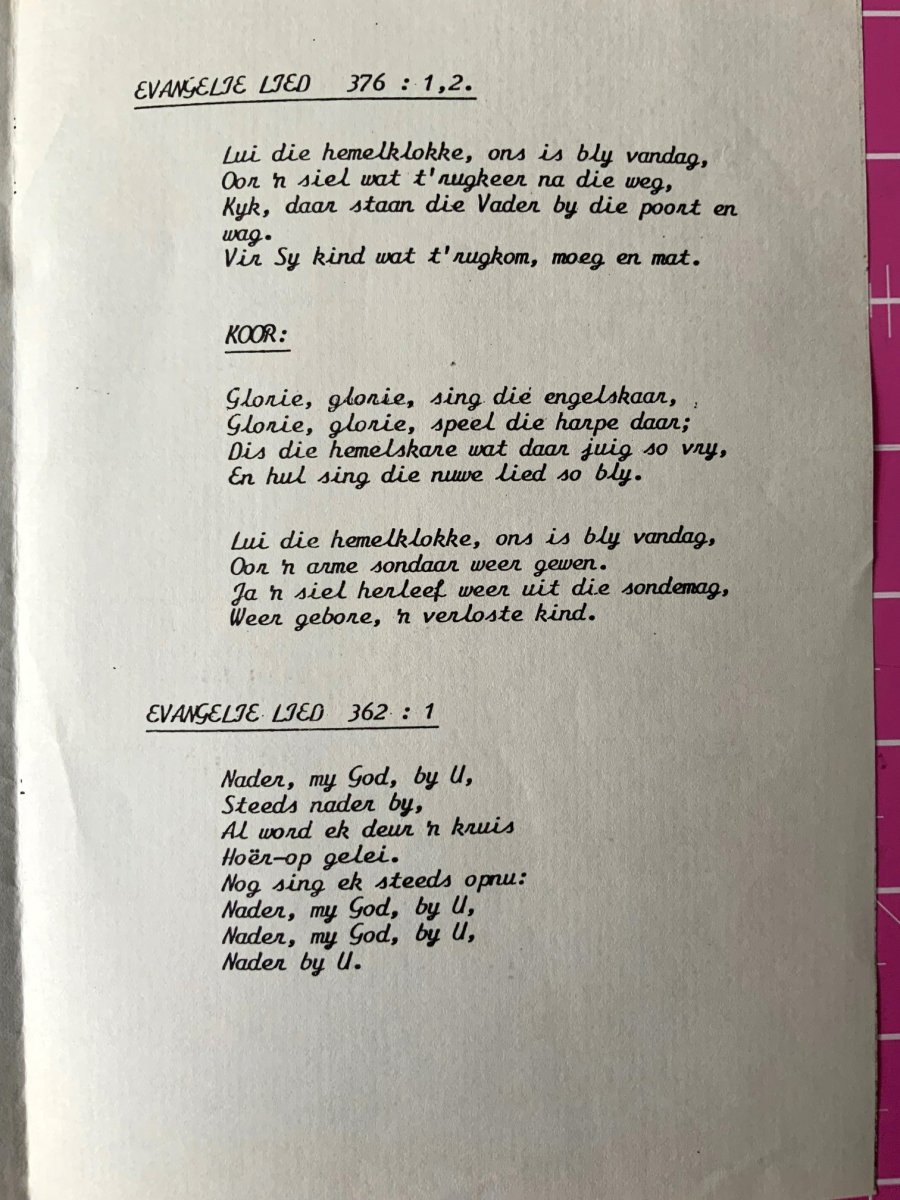 EVANGELIE LIED 376 : 1,2.
Lui die hemelklokke, ons is bly vandag,
Oor 'n siel wat t'rugkeer na die weg,
Kyk, daar staan die Vader by die poort en
wag.
Vir Sy kind wat t'rugkom, moeg en mat.
KOOR:
Glorie, glorie, sing die engelskaar,
Glorie, glorie, speel die harpe daar;
Dis die hemelskare wat daar juig so vry,
En hul sing die nuwe lied so bly.
Lui die hemelklokke, ons is bly vandag,
Oor 'n arme sondaar weer gewen.
Ja 'n siel herleef weer uit die sondemag,
Weer gebore, 'n verloste kind.
EVANGELIE LIED 362 : 1
Nader, my God, by U,
Steeds nader by,
Al word ek deur 'n kruis
Hoër-op gelei.
Nog sing ek steeds opnu:
Nader, my God, by U,
Nader, my God, by U,
Nader by U.